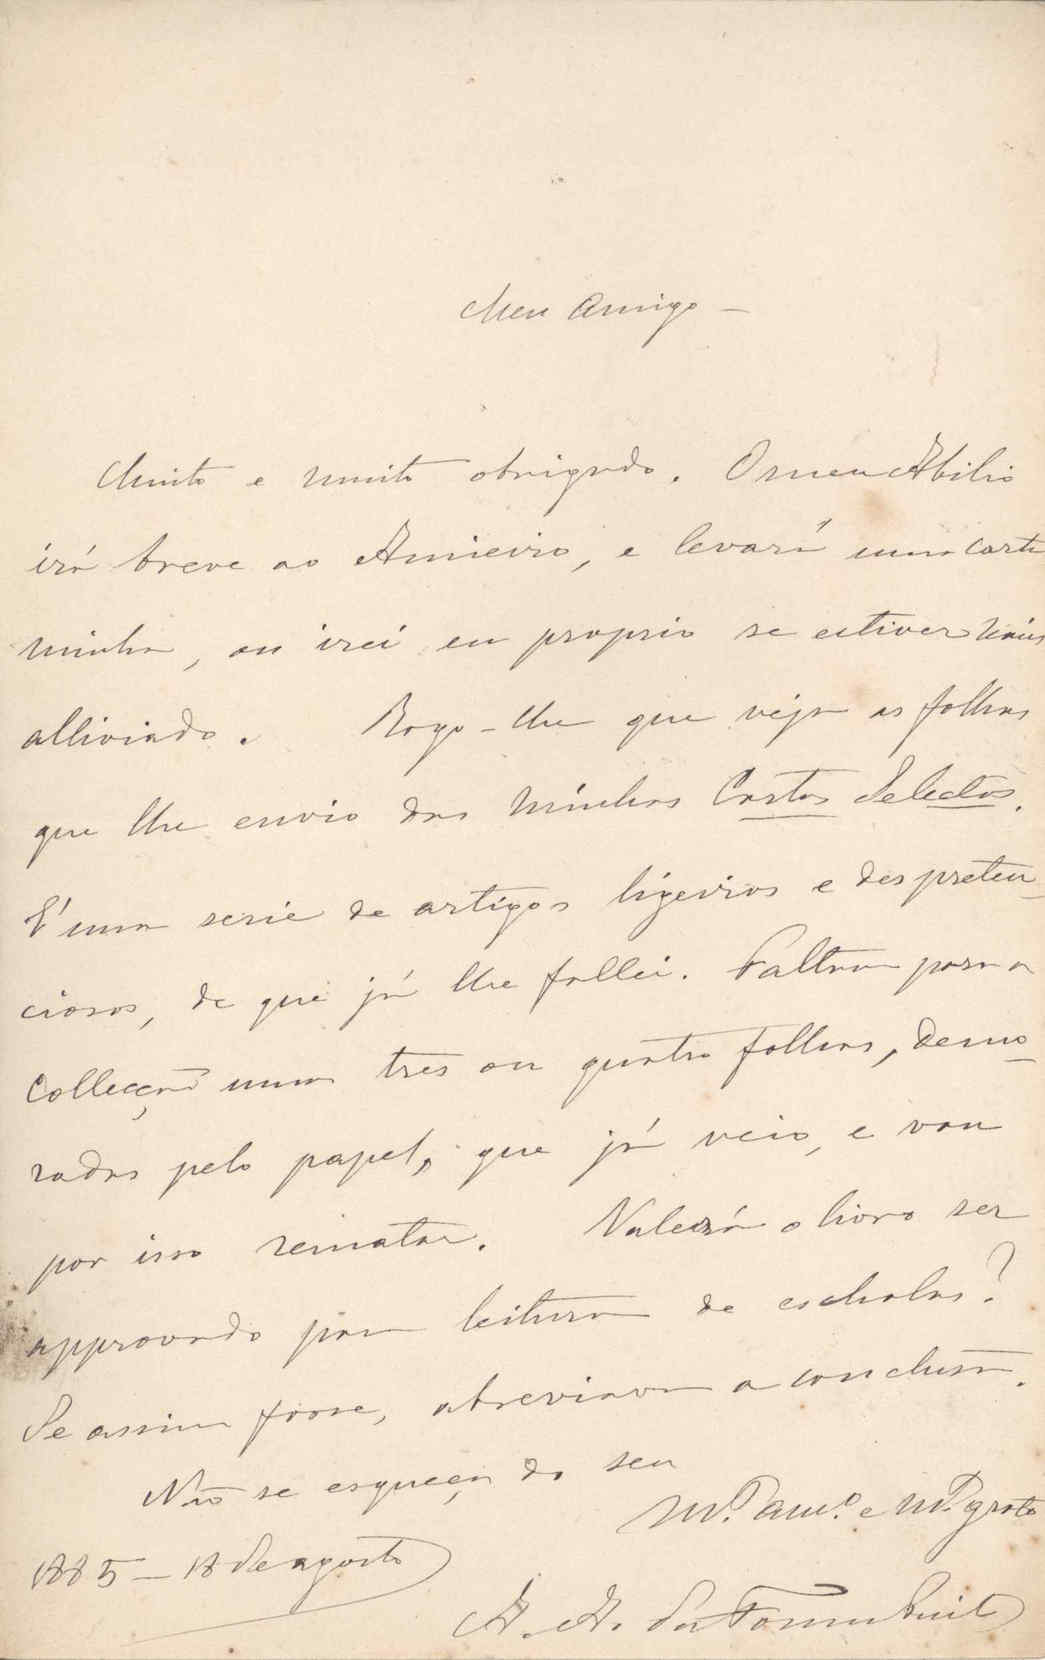 Meu Amigo –
Muito e muito obrigado. O meu Abilio
irá breve ao Amieiro, e levará uma carta
minha, ou irei eu proprio se estiver mais
alliviado. Rogo-lhe que veja as folhas
que lhe envio das minhas Cartas Selectas.
É uma serie de artigos ligeiros e despreten-
ciosos, de que já lhe fallei. Faltam para a
Collecção umas tres ou quatro folhas, demo-
radas pelo papel, que já veio, e vou
por isso rematar. Valerá o livro ser
approvado para leitura de escholas?
Se assim fosse, abreviava a conclusão.
Não se esqueça do seu
Mto. amo. e Mto. grato
1885 – 18 de agosto
A. A. da Fonseca Pinto